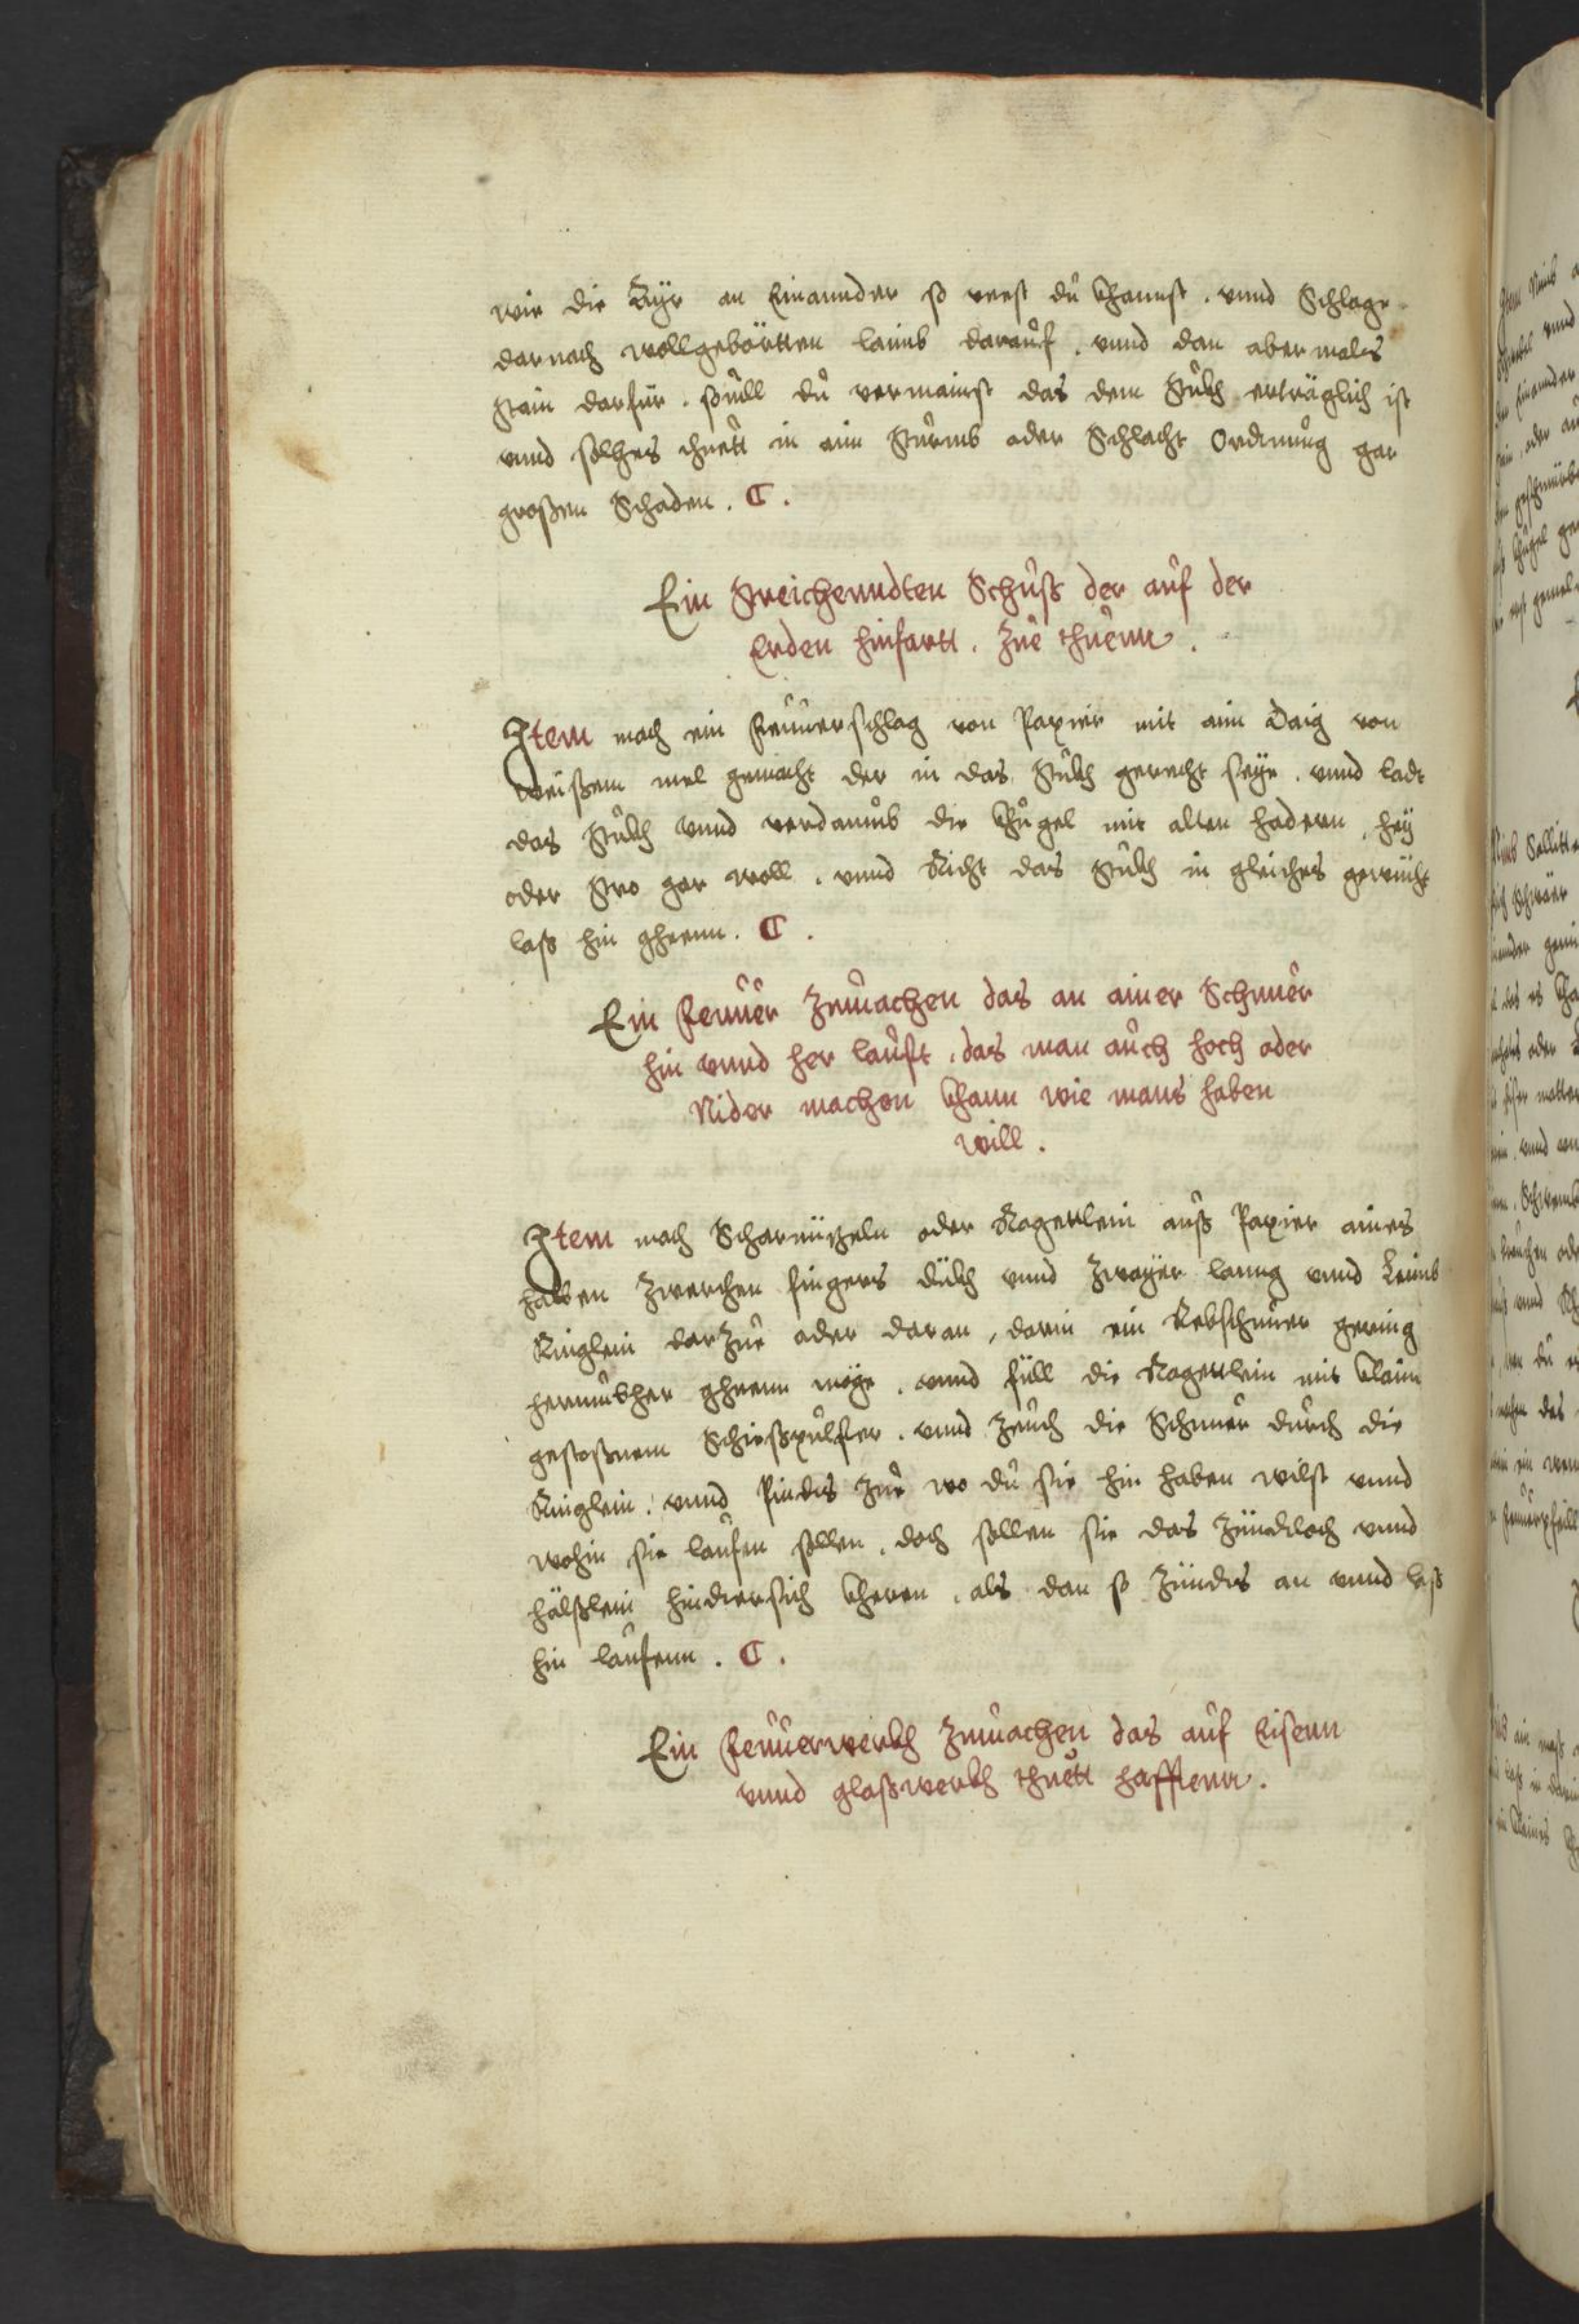 wie die Ayr an Einannder so vesst dŭ khannst . vnnd Schlage
darnach wollgebörtten laimb daraŭf . vnnd dan abermales
stain darfür . souill dŭ vermainst das dem stŭkh erträglich ist
vnnd solhes thuett in aim stŭrmb oder Schlacht Ordnŭng gar
großen Schaden . C .
Ein streichenndten Schŭß der aŭf der
Erden hinfartt . Zŭe thŭenn .
Item mach ein feuuerschlag von Papier mit aim daig von
weißem mel gemacht der in das stŭkh gerecht seye . vnnd lad
das stŭkh vnnd verdamb die khŭgel mit alten hadern , hey
oder stro gar woll . vnnd Richt das stŭkh in gleiches gewicht
laß hin gheenn . C .
Ein feuuer Zumachen das an ainer Schnuer
hin vnnd her laŭfft . das man aŭch hoch oder
Nider machen khann wie mans haben
will .
Item mach Scharnützeln oder Ragettlein auß Papier aines
halben Zwerchen fingers dikh vnnd Zwayer lanng vnnd Leimb
Ringlein darzŭe oder daran , darin ein Rebschnŭer gering
hernŭbher gheenn möge . vnnd füll die Ragettlein mit klain
gestoßnem Schießpulfler . vnnd Zeuch die Schnuer durch die
Ringlein . vnnd Pindts Zŭe wo dŭ sie hin haben wilst vnnd
wohin sie laŭfen sollen . doch sollen sie das Zündtloch vnnd
hälßlein hindersich kheren . als dan so Zündts an vnnd laß
hin laŭfenn . C .
Ein feuuerwerkh Zumachen das auf Eisenn
vnnd glaßwerkh thuett hafftenn .